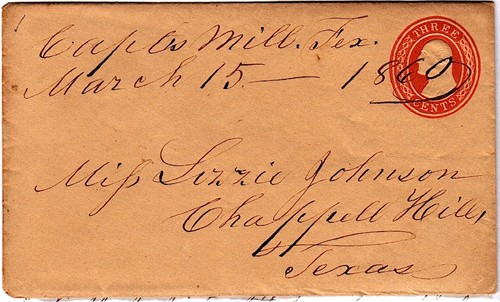 Capt's Mill. Tex.
March 15 — 1860
THREE
CENTS
Miss Lizzie Johnson
Chappell Hill,
Texas